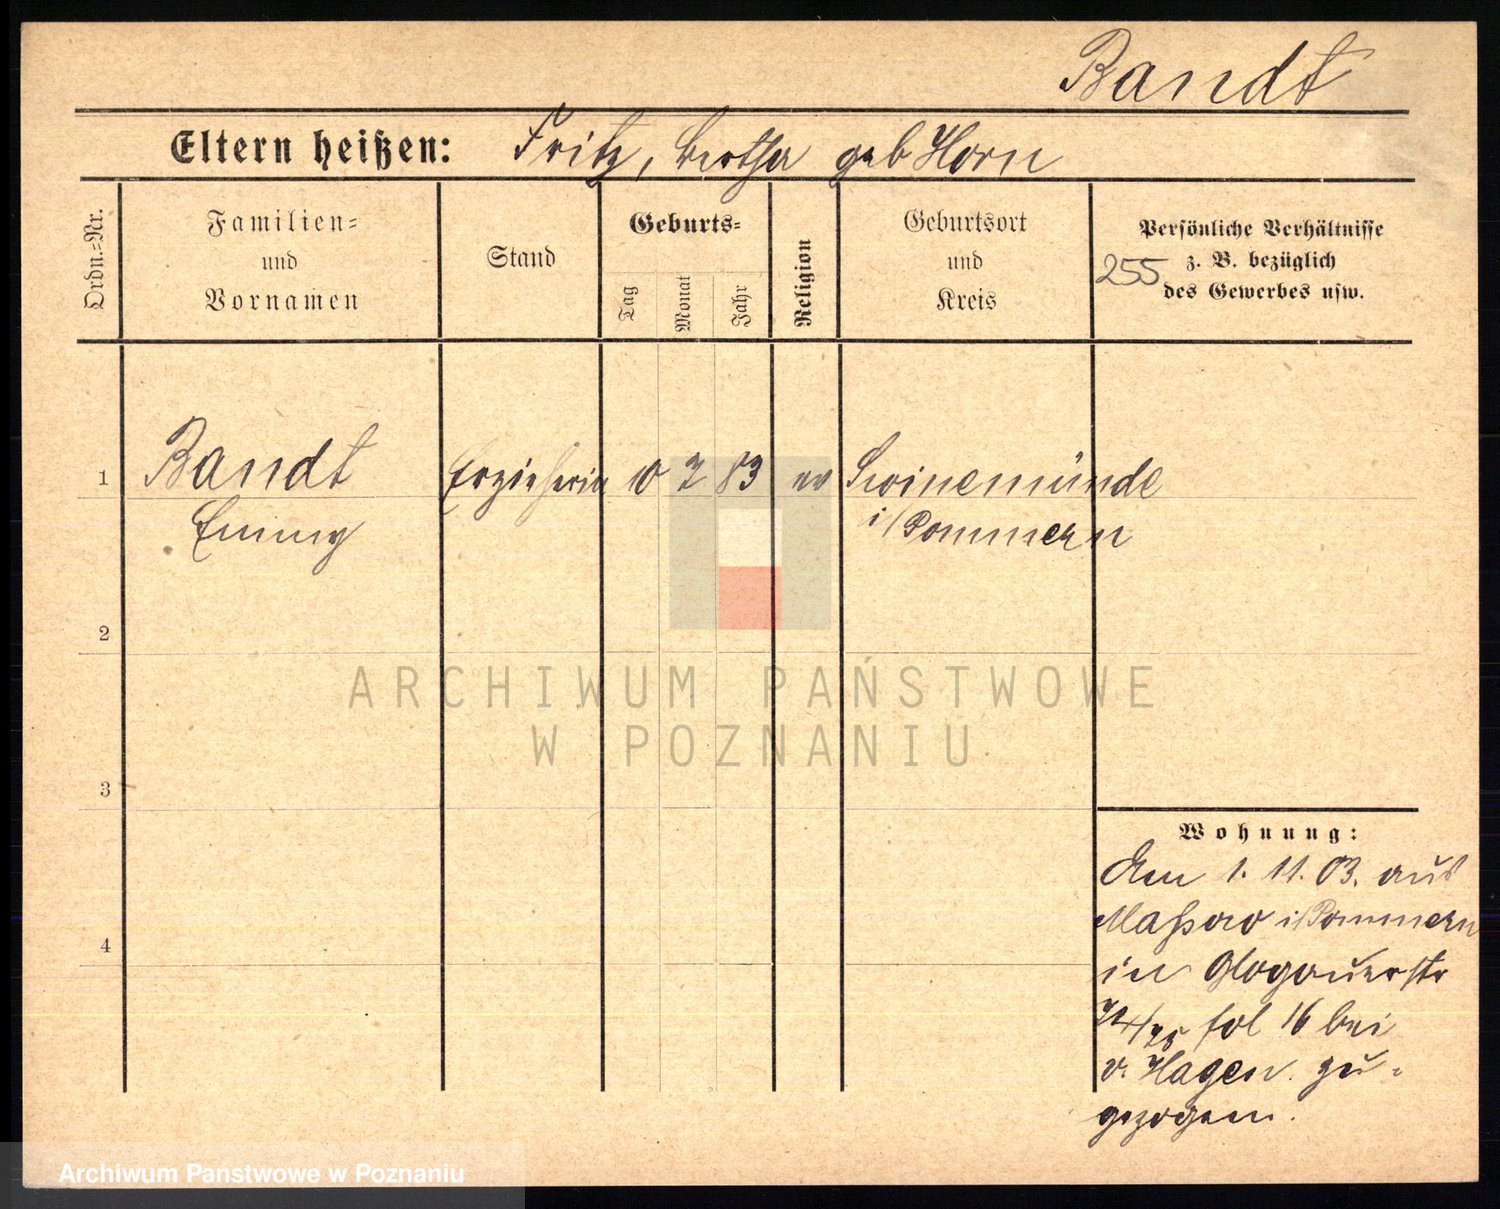 Bandt
Eltern heißen: Fritz, Bertha geb Horn
Ordn.-Nr.
Familien-
und
Vornamen
Stand
Geburts-
Tag
Monat
Jahr
Religion
Geburtsort
und
Kreis
Persönliche Verhältnisse
255 z. B. bezüglich
des Gewerbes usw.
1 Bandt Erzieherin 10 7 83 ev Swinemünde
Emmy i/Pommern
2
3
4
ARCHIWUM PAŃSTWOWE
W POZNANIU
Wohnung:
Am 1. 11. 03. aus
Massow i/Pommern
in Glogauerstr
74/75 fol 16 bei
v. Hagen zu-
gezogen.
Archiwum Państwowe w Poznaniu